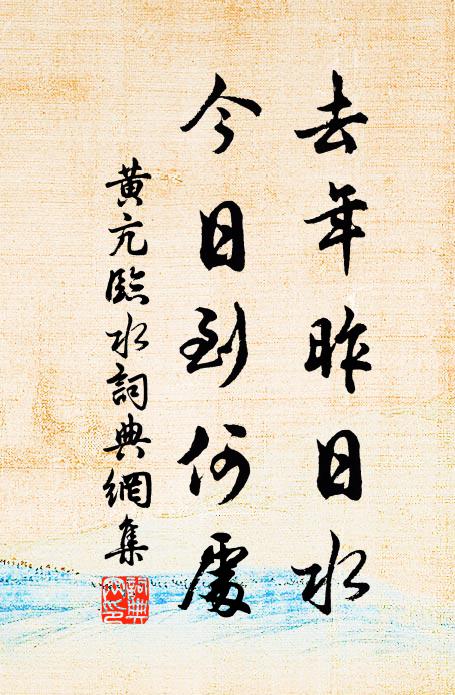 去年昨日水
今日到何處
黃亢臨水詞典網集